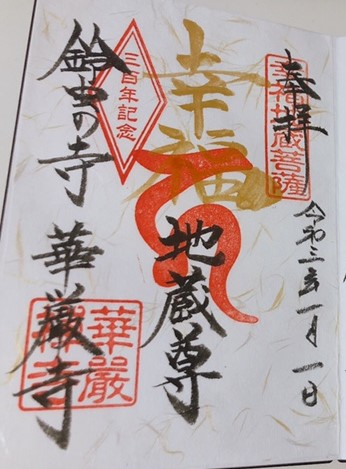 奉拝
幸福地蔵菩薩
令和三年一月一日
幸福
地蔵尊
三百年記念
鈴虫の寺 華厳寺
華嚴寺